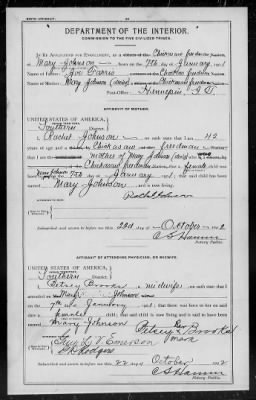 DEPARTMENT OF THE INTERIOR.
COMMISSION TO THE FIVE CIVILIZED TRIBES.
IN RE APPLICATION FOR ENROLLMENT, as a citizen of the Chickasaw freedman Nation,
of Mary Johnson, born on the 7th day of January, 1901
Name of Father: Joe Farris a citizen of the Choctaw freedman Nation.
Name of Mother: Mary Johnson a citizen of the Chickasaw freedman Nation.
Post-Office, Hennepin I.T.
AFFIDAVIT OF MOTHER.
UNITED STATES OF AMERICA,
Southern District.
I, Rachel Johnson, on oath state that I am 42
years of age and a citizen Chickasaw freedman
mother of Mary Johnson
Chickasaw freedman that a female child
7th day of January, 1901, that said child has been
named Mary Johnson, and is now living.
Rachel Johnson
Subscribed and sworn to before me this 22d October 1902
C S Hamm
Notary Public.
AFFIDAVIT OF ATTENDING PHYSICIAN, OR MIDWIFE.
UNITED STATES OF AMERICA,
Southern District.
I, Betsey Brooks, a midwife, on oath state that I
attended on Mary Johnson
7th day of January, 1901; that there was born to her on said
female child; that said child is now living and is said to have been
named Mary Johnson
Betsey Brooks
her
mark
Emerson
Subscribed and sworn to before me this 22 October 1902
C S Hamm
Notary Public.